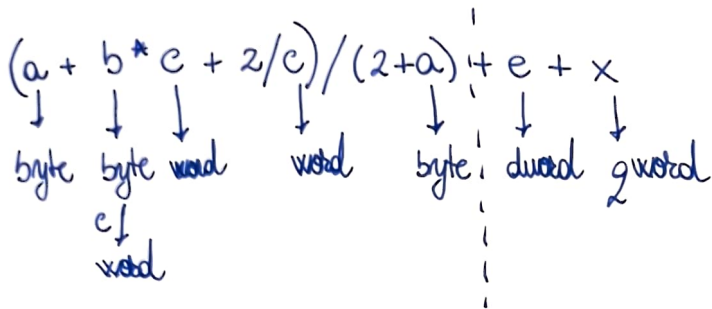 (a + b * c + 2/c) / (2+a) + e + x
byte byte word word byte dword qword
c
word